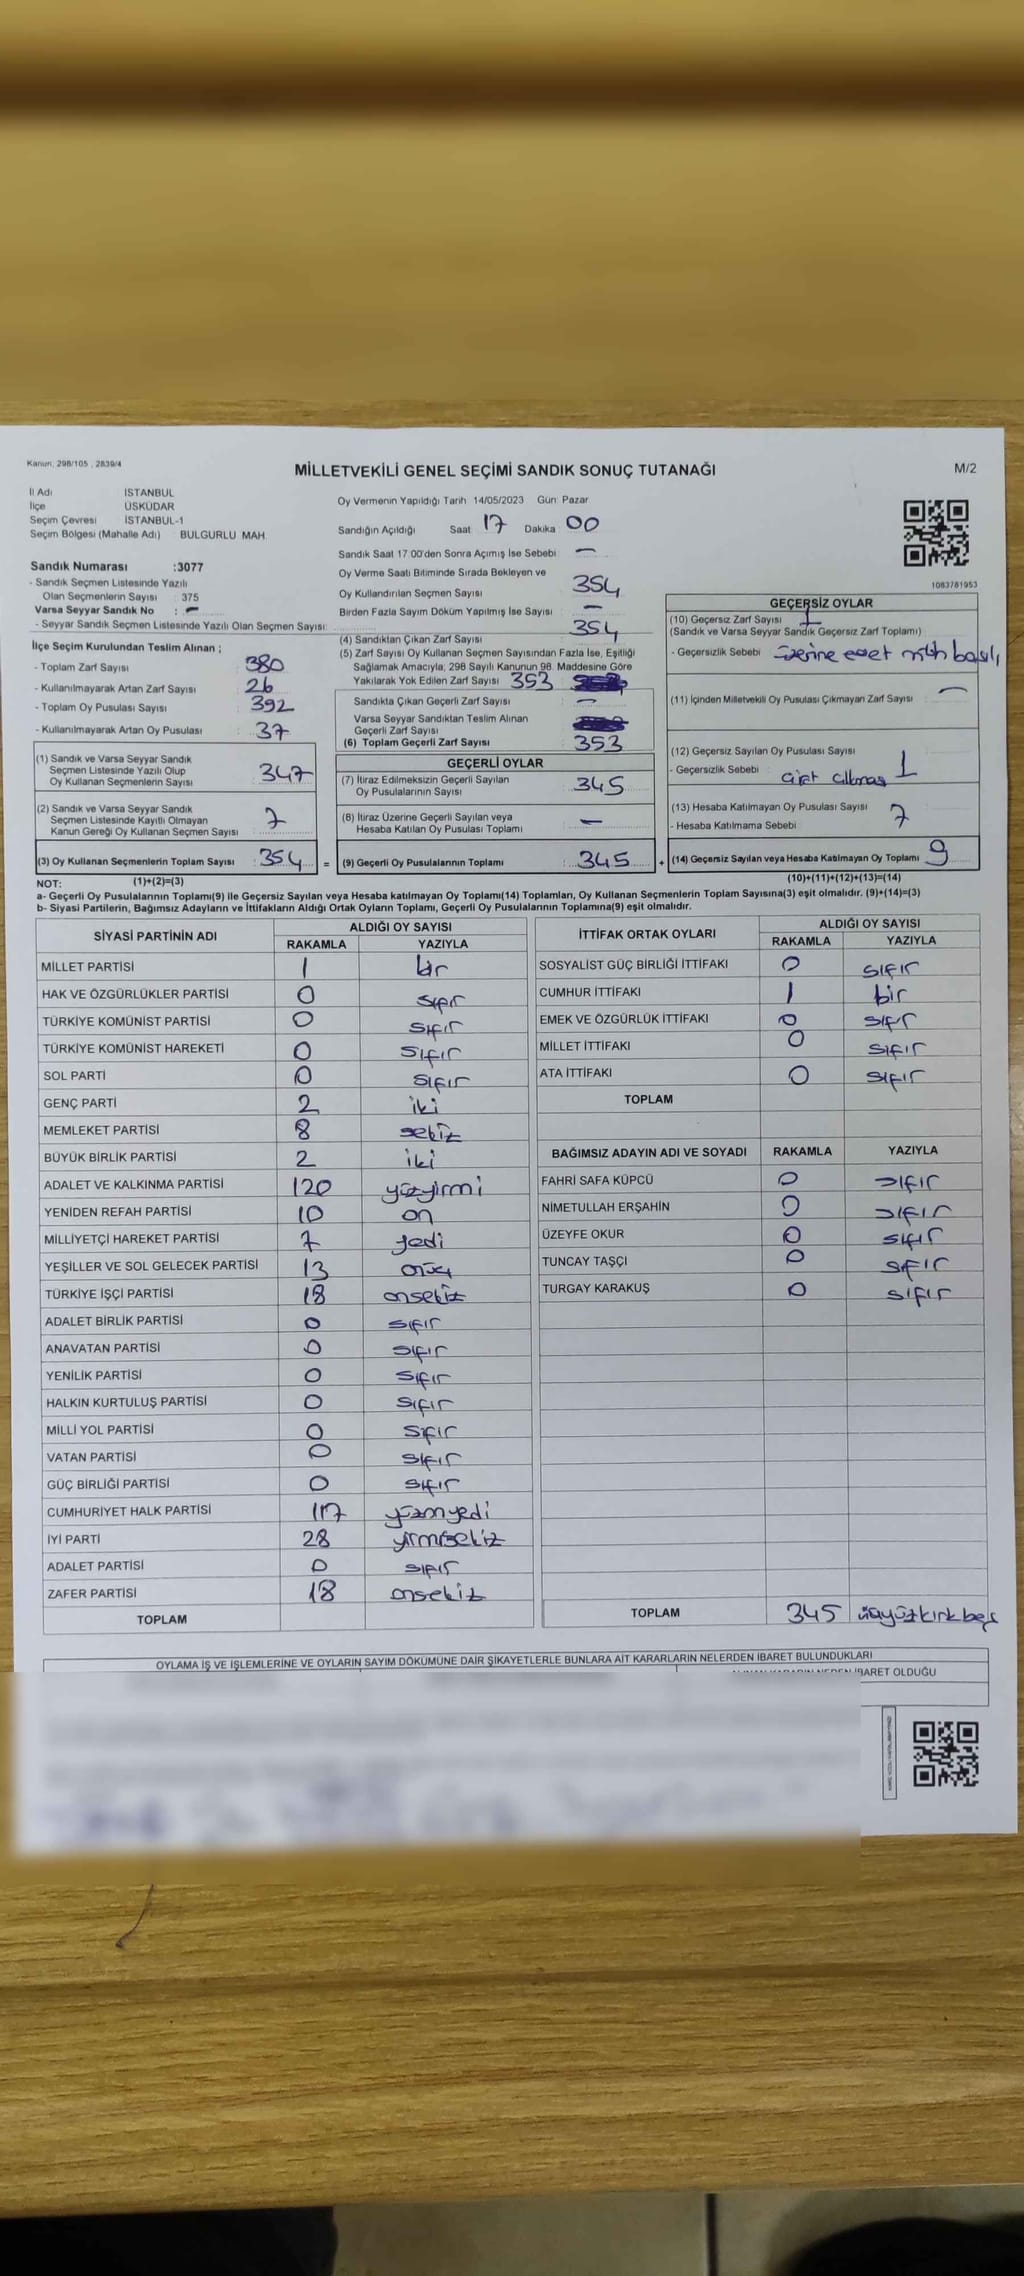 Kanun: 298/105 , 2839/4
MİLLETVEKİLİ GENEL SEÇİMİ SANDIK SONUÇ TUTANAĞI
M/2
İl Adı İSTANBUL
İlçe ÜSKÜDAR
Seçim Çevresi İSTANBUL-1
Seçim Bölgesi (Mahalle Adı) BULGURLU MAH.
Oy Vermenin Yapıldığı Tarih 14/05/2023 Gün: Pazar
Sandığın Açıldığı Saat 17 Dakika 00
Sandık Saat 17:00'den Sonra Açımış İse Sebebi —
Oy Verme Saati Bitiminde Sırada Bekleyen ve
Oy Kullandırılan Seçmen Sayısı 354
Birden Fazla Sayım Döküm Yapılmış İse Sayısı —
1083781953
Sandık Numarası :3077
- Sandık Seçmen Listesinde Yazılı
Olan Seçmenlerin Sayısı : 375
Varsa Seyyar Sandık No : —
- Seyyar Sandık Seçmen Listesinde Yazılı Olan Seçmen Sayısı:
İlçe Seçim Kurulundan Teslim Alınan ;
- Toplam Zarf Sayısı : 380
- Kullanılmayarak Artan Zarf Sayısı : 26
- Toplam Oy Pusulası Sayısı : 392
- Kullanılmayarak Artan Oy Pusulası : 37
(1) Sandık ve Varsa Seyyar Sandık
Seçmen Listesinde Yazılı Olup
Oy Kullanan Seçmenlerin Sayısı : 347
(2) Sandık ve Varsa Seyyar Sandık
Seçmen Listesinde Kayıtlı Olmayan
Kanun Gereği Oy Kullanan Seçmen Sayısı : 7
(3) Oy Kullanan Seçmenlerin Toplam Sayısı : 354 =
(1)+(2)=(3)
(4) Sandıktan Çıkan Zarf Sayısı 354
(5) Zarf Sayısı Oy Kullanan Seçmen Sayısından Fazla İse, Eşitliği
Sağlamak Amacıyla; 298 Sayılı Kanunun 98. Maddesine Göre
Yakılarak Yok Edilen Zarf Sayısı 353
Sandıkta Çıkan Geçerli Zarf Sayısı : —
Varsa Seyyar Sandıktan Teslim Alınan
Geçerli Zarf Sayısı :
(6) Toplam Geçerli Zarf Sayısı : 353
GEÇERLİ OYLAR
(7) İtiraz Edilmeksizin Geçerli Sayılan
Oy Pusulalarının Sayısı : 345
(8) İtiraz Üzerine Geçerli Sayılan veya
Hesaba Katılan Oy Pusulası Toplamı : —
(9) Geçerli Oy Pusulalarının Toplamı : 345 +
GEÇERSİZ OYLAR
(10) Geçersiz Zarf Sayısı 1
(Sandık ve Varsa Seyyar Sandık Geçersiz Zarf Toplamı)
- Geçersizlik Sebebi : üzerine evet mührü basılı
(11) İçinden Milletvekili Oy Pusulası Çıkmayan Zarf Sayısı —
(12) Geçersiz Sayılan Oy Pusulası Sayısı 1
- Geçersizlik Sebebi :
(13) Hesaba Katılmayan Oy Pusulası Sayısı 7
- Hesaba Katılmama Sebebi
(14) Geçersiz Sayılan veya Hesaba Katılmayan Oy Toplamı 9
(10)+(11)+(12)+(13)=(14)
NOT:
a- Geçerli Oy Pusulalarının Toplamı(9) ile Geçersiz Sayılan veya Hesaba katılmayan Oy Toplamı(14) Toplamları, Oy Kullanan Seçmenlerin Toplam Sayısına(3) eşit olmalıdır. (9)+(14)=(3)
b- Siyasi Partilerin, Bağımsız Adayların ve İttifakların Aldığı Ortak Oyların Toplamı, Geçerli Oy Pusulalarının Toplamına(9) eşit olmalıdır.
SİYASİ PARTİNİN ADI ALDIĞI OY SAYISI
RAKAMLA YAZIYLA
MİLLET PARTİSİ 1 bir
HAK VE ÖZGÜRLÜKLER PARTİSİ 0 sıfır
TÜRKİYE KOMÜNİST PARTİSİ 0 sıfır
TÜRKİYE KOMÜNİST HAREKETİ 0 sıfır
SOL PARTİ 0 sıfır
GENÇ PARTİ 2 iki
MEMLEKET PARTİSİ 8 sekiz
BÜYÜK BİRLİK PARTİSİ 2 iki
ADALET VE KALKINMA PARTİSİ 120 yüzyirmi
YENİDEN REFAH PARTİSİ 10 on
MİLLİYETÇİ HAREKET PARTİSİ 7 yedi
YEŞİLLER VE SOL GELECEK PARTİSİ 13 onüç
TÜRKİYE İŞÇİ PARTİSİ 18 onsekiz
ADALET BİRLİK PARTİSİ 0 sıfır
ANAVATAN PARTİSİ 0 sıfır
YENİLİK PARTİSİ 0 sıfır
HALKIN KURTULUŞ PARTİSİ 0 sıfır
MİLLİ YOL PARTİSİ 0 sıfır
VATAN PARTİSİ 0 sıfır
GÜÇ BİRLİĞİ PARTİSİ 0 sıfır
CUMHURİYET HALK PARTİSİ 117 yüzonyedi
İYİ PARTİ 28 yirmisekiz
ADALET PARTİSİ 0 sıfır
ZAFER PARTİSİ 18 onsekiz
TOPLAM
İTTİFAK ORTAK OYLARI ALDIĞI OY SAYISI
RAKAMLA YAZIYLA
SOSYALİST GÜÇ BİRLİĞİ İTTİFAKI 0 sıfır
CUMHUR İTTİFAKI 1 bir
EMEK VE ÖZGÜRLÜK İTTİFAKI 0 sıfır
MİLLET İTTİFAKI 0 sıfır
ATA İTTİFAKI 0 sıfır
TOPLAM
BAĞIMSIZ ADAYIN ADI VE SOYADI RAKAMLA YAZIYLA
FAHRİ SAFA KÜPCÜ 0 sıfır
NİMETULLAH ERŞAHİN 0 sıfır
ÜZEYFE OKUR 0 sıfır
TUNCAY TAŞÇI 0 sıfır
TURGAY KARAKUŞ 0 sıfır
TOPLAM 345 üçyüzkırkbeş
OYLAMA İŞ VE İŞLEMLERİNE VE OYLARIN SAYIM DÖKÜMÜNE DAİR ŞİKAYETLERLE BUNLARA AİT KARARLARIN NELERDEN İBARET BULUNDUKLARI
İBARET OLDUĞU